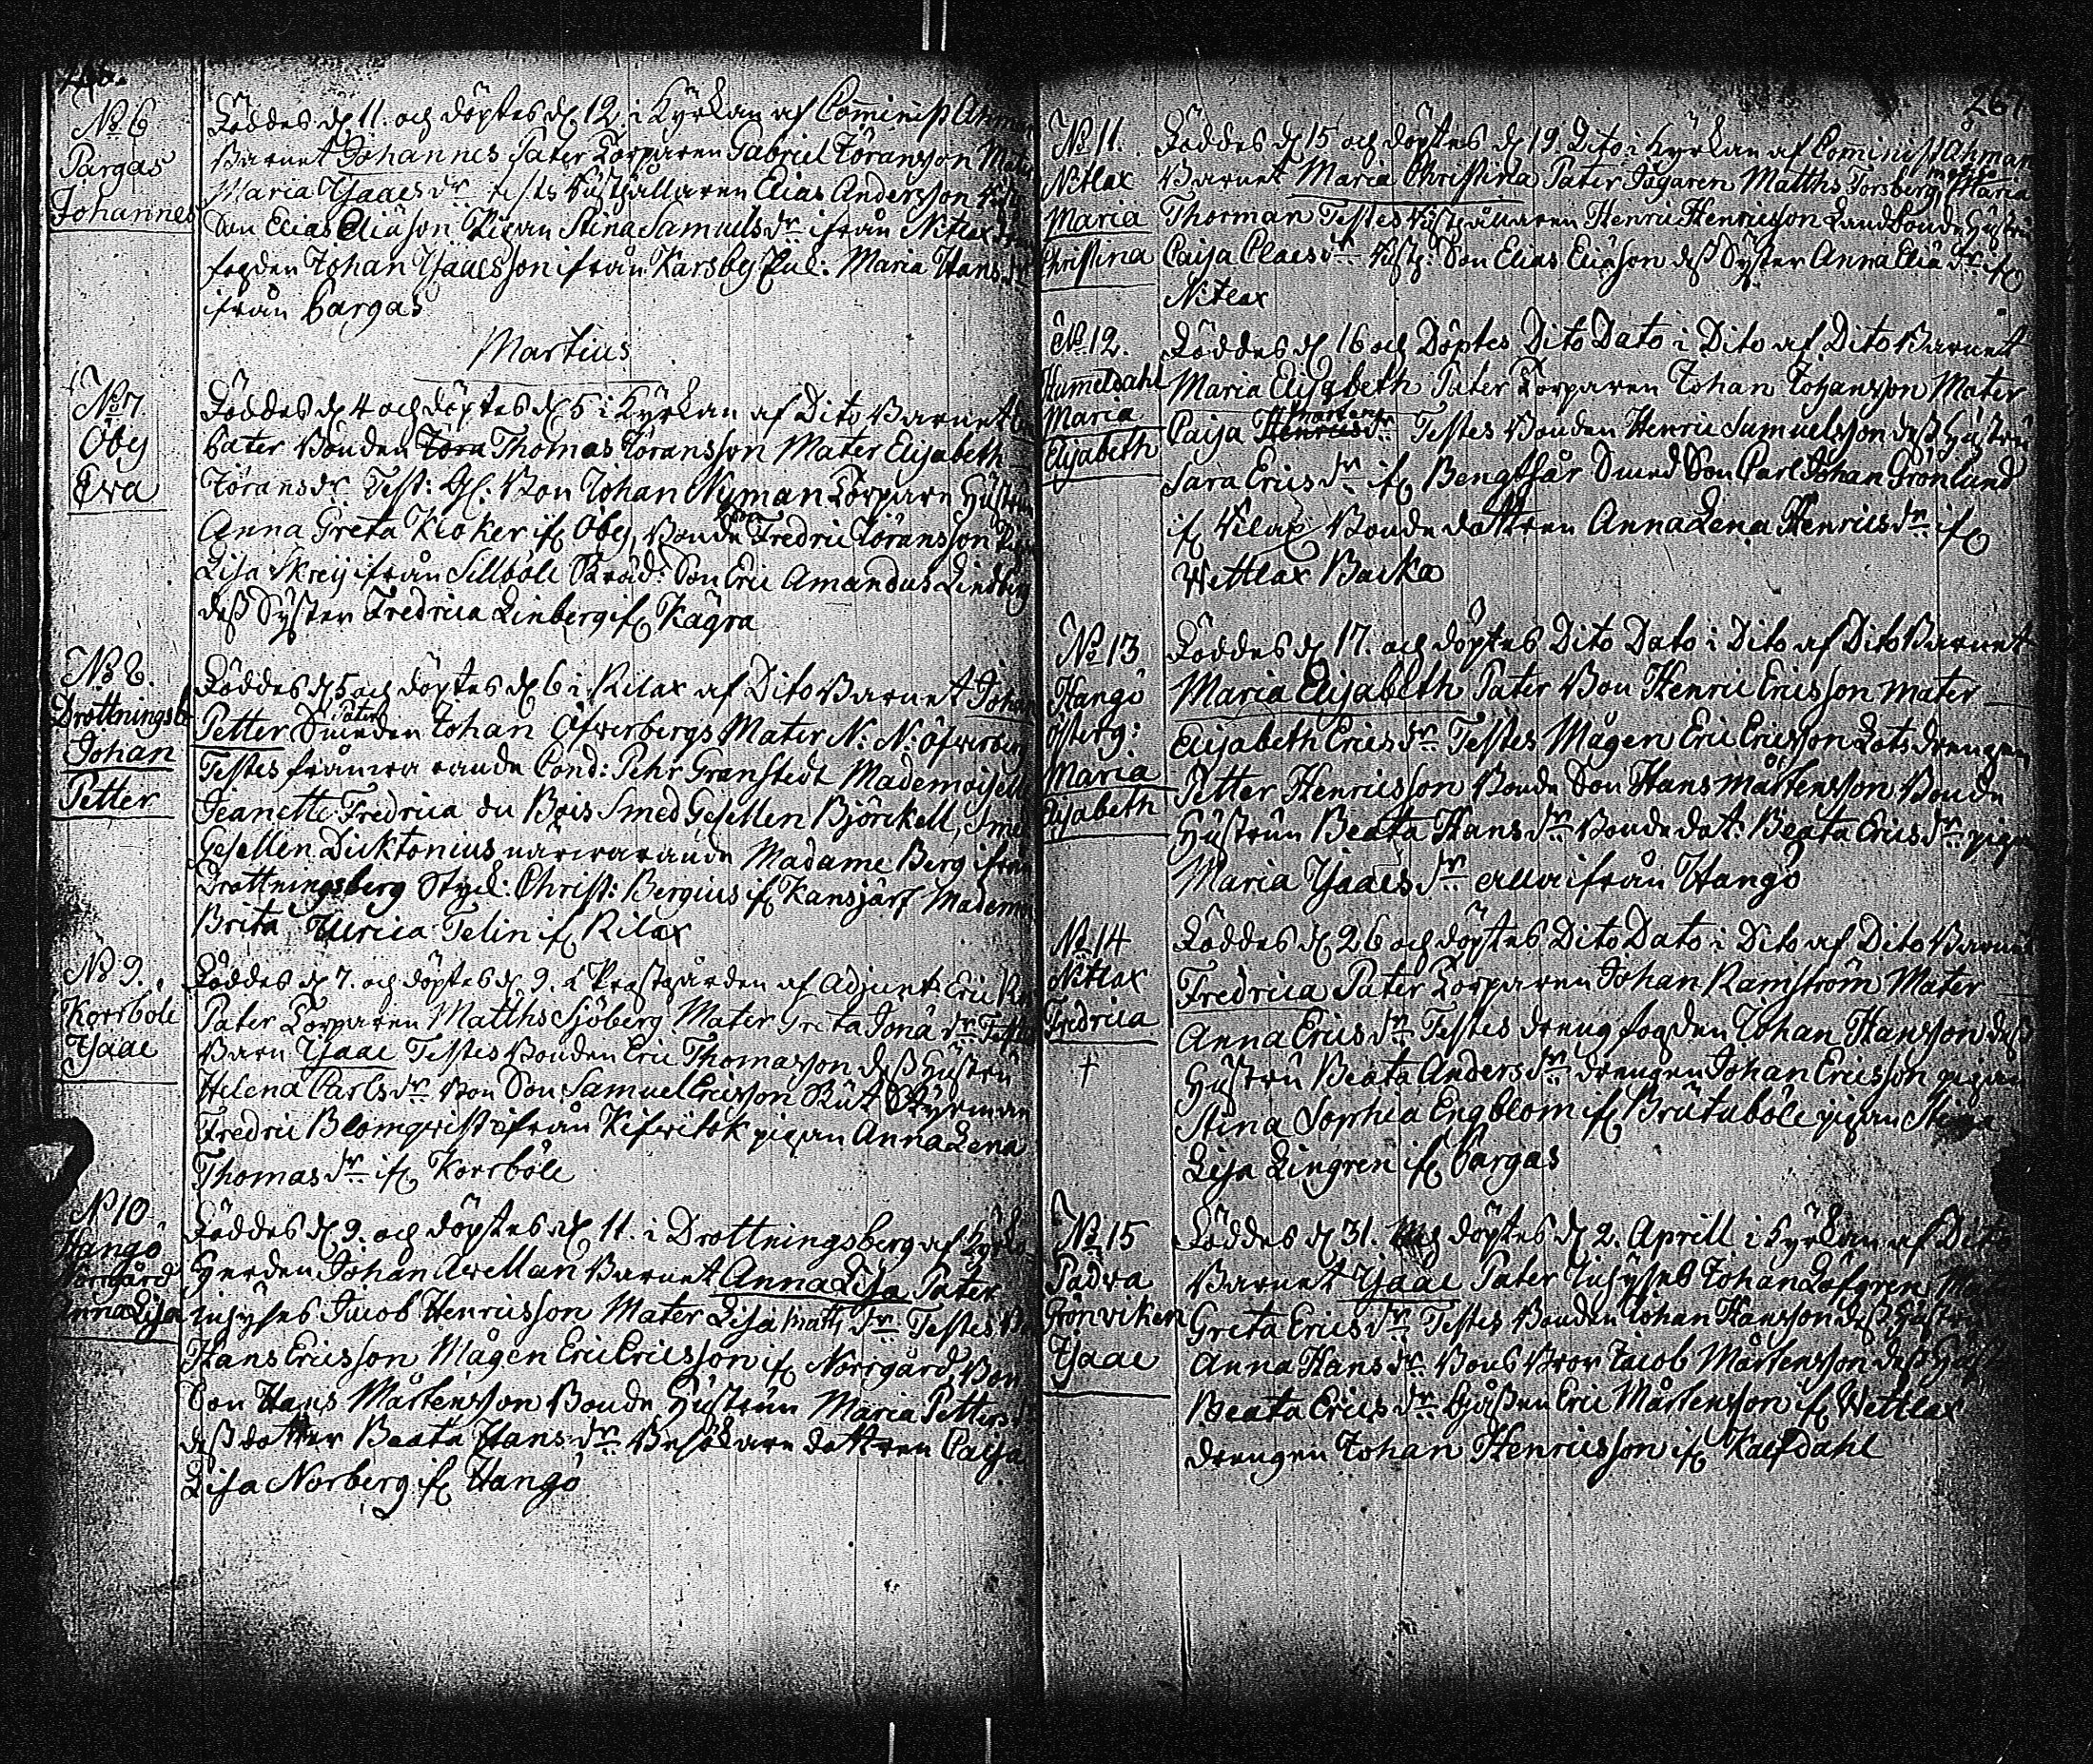 No 6
Pargas
Johannes
Föddes d. 11. och döptes d. 12 i Kyrkan af Cominist Åhman
Barnet Johannes Pater Torparen Gabriel Jöransson Mater
Maria Isaacs dr. testes Rusthållaren Elias Andersson
Son Elias Eliäson Pigan Stina Samuels dr ifrån Nitlax
fogden Johan Isaacsson ifrån Karsby Maria Hans dr
ifrån Pargas
Martius
No 7.
Öby
Eva
Föddes d. 4 och döptes d. 5 i Kyrkan af Dito Barnet
Pater Bonden Thomas Jöransson Mater Elisabeth
Jörans dr. Test: Johan Nyman Torparn Hustrun
Anna Greta Kloker if. Öby, Bonde Son Fredric Jöransson
Lisa Skrey ifrån Sillböle Skräd: Son Eric Amandus Lindberg
dess Syster Fredrica Linberg if. Kägra
No 8.
Drottningsb
Johan
Petter
Föddes d. 5 och döptes d. 6 i Rilax af Dito Barnet Johan
Petter Pater Smeden Johan Öfverbergs Mater N: N: Öfverberg
Testes frånvarande Cond: Pehr Granstedt Mademoiselle
Jeanette Fredrica du Bois Smed Gesellen Björckell, Smed
Gesellen Dicktonius närvarande Madame Berg ifrån
Drottningsberg Styck: Christ: Bergius if. Kansjärf Mademoi
Brita Ulrica Telin if. Rilax
No 9.
Korrböle
Isaac
Föddes d. 7. och döptes d. 9. i Prestgården af Adjunct Eric
Pater Torparen Matths Sjöberg Mater Greta Jonä dr.
Barn Isaac Testes Bonden Eric Thomasson dess Hustru
Helena Carls dr Bon Son Samuel Ericsson Styrman
Fredric Blomqvist ifrån pigan Anna Lena
Thomas dr if. Korrböle
No 10
Hangö
Norrgård
Anna Lisa
Föddes d. 9. och döptes d. 11. i Drottningsberg af Kyrko
Herden Johan Avellan Barnet Anna Lisa Pater
Inhyses Jacob Henricsson Mater Lisa Matts dr Testes
Hans Ericsson Mågen Eric Ericsson if. Norrgård, Bon
Son Hans Mårtensson Bonde Hustrun Maria Petters
dess dotter Beata Hans dr Besökare dottren Caisa
Lisa Norberg if. Hangö
267
No 11.
Nitlax
Maria
Christina
Föddes d. 15 och döptes d. 19. Dito i Kyrkan af Cominist Åhman
Barnet Maria Christina Pater Jägaren Matths Forsberg, mater Maria
Thorman Testes Rusthållaren Henric Henricsson Landbonde Hustru
Caisa Claes dr Rusth: Son Elias Eliäson dess Syster Anna Eliä dr if.
Nitlax
No 12.
Humeldahl
Maria
Elisabeth
Föddes d. 16 och Döptes Dito Dato i Dito af Dito Barnet
Maria Elisabeth Pater Torparen Johan Johansson Mater
Caisa Henrics dr Testes Bonden Henric Samuelsson dess Hustru
Sara Erics dr if. Bengtsår Smed Son Carl Johan Grönlund
if. Bonde dottren Anna Lena Henrics dr if.
Wettlax Backa
No 13
Hangö
Österg:
Maria
Elisabeth
Föddes d. 17. och döptes Dito Dato i Dito af Dito Barnet
Maria Elisabeth Pater Bon Henric Ericsson mater
Elisabeth Erics dr Testes Mågen Eric Ericsson Lots drengen
Petter Henricsson Bonde Son Hans Mårtensson Bonde
Hustrun Beata Hans dr Bonde dot: Beata Erics dr pigan
Maria Isaacs dr alla ifrån Hangö
No 14
Nitlax
Fredrica
†
Föddes d. 26 och döptes Dito Dato i Dito af Dito Barnet
Fredrica Pater Torparen Johan Ramström Mater
Anna Erics dr Testes dreng fogden Johan Hansson dess
Hustru Beata Anders dr drengen Johan Ericsson pigan
Stina Sophia Engblom if. Brutuböle pigan Stina
Lisa Lingren if. Pargas
No 15
Padva
Grönviken
Isaac
Föddes d. 31. och döptes d. 2. Aprill i Kyrkan af Dito
Barnet Isaac Pater Inhyses Johan Löfgren
Greta Erics dr Testes Bonden Johan Hansson dess Hustru
Anna Hans dr Bons Bror Jacob Mårtensson dess
Beata Erics dr Eric Mårtensson if. Wettlax
drengen Johan Henricsson if. Kalfdahl